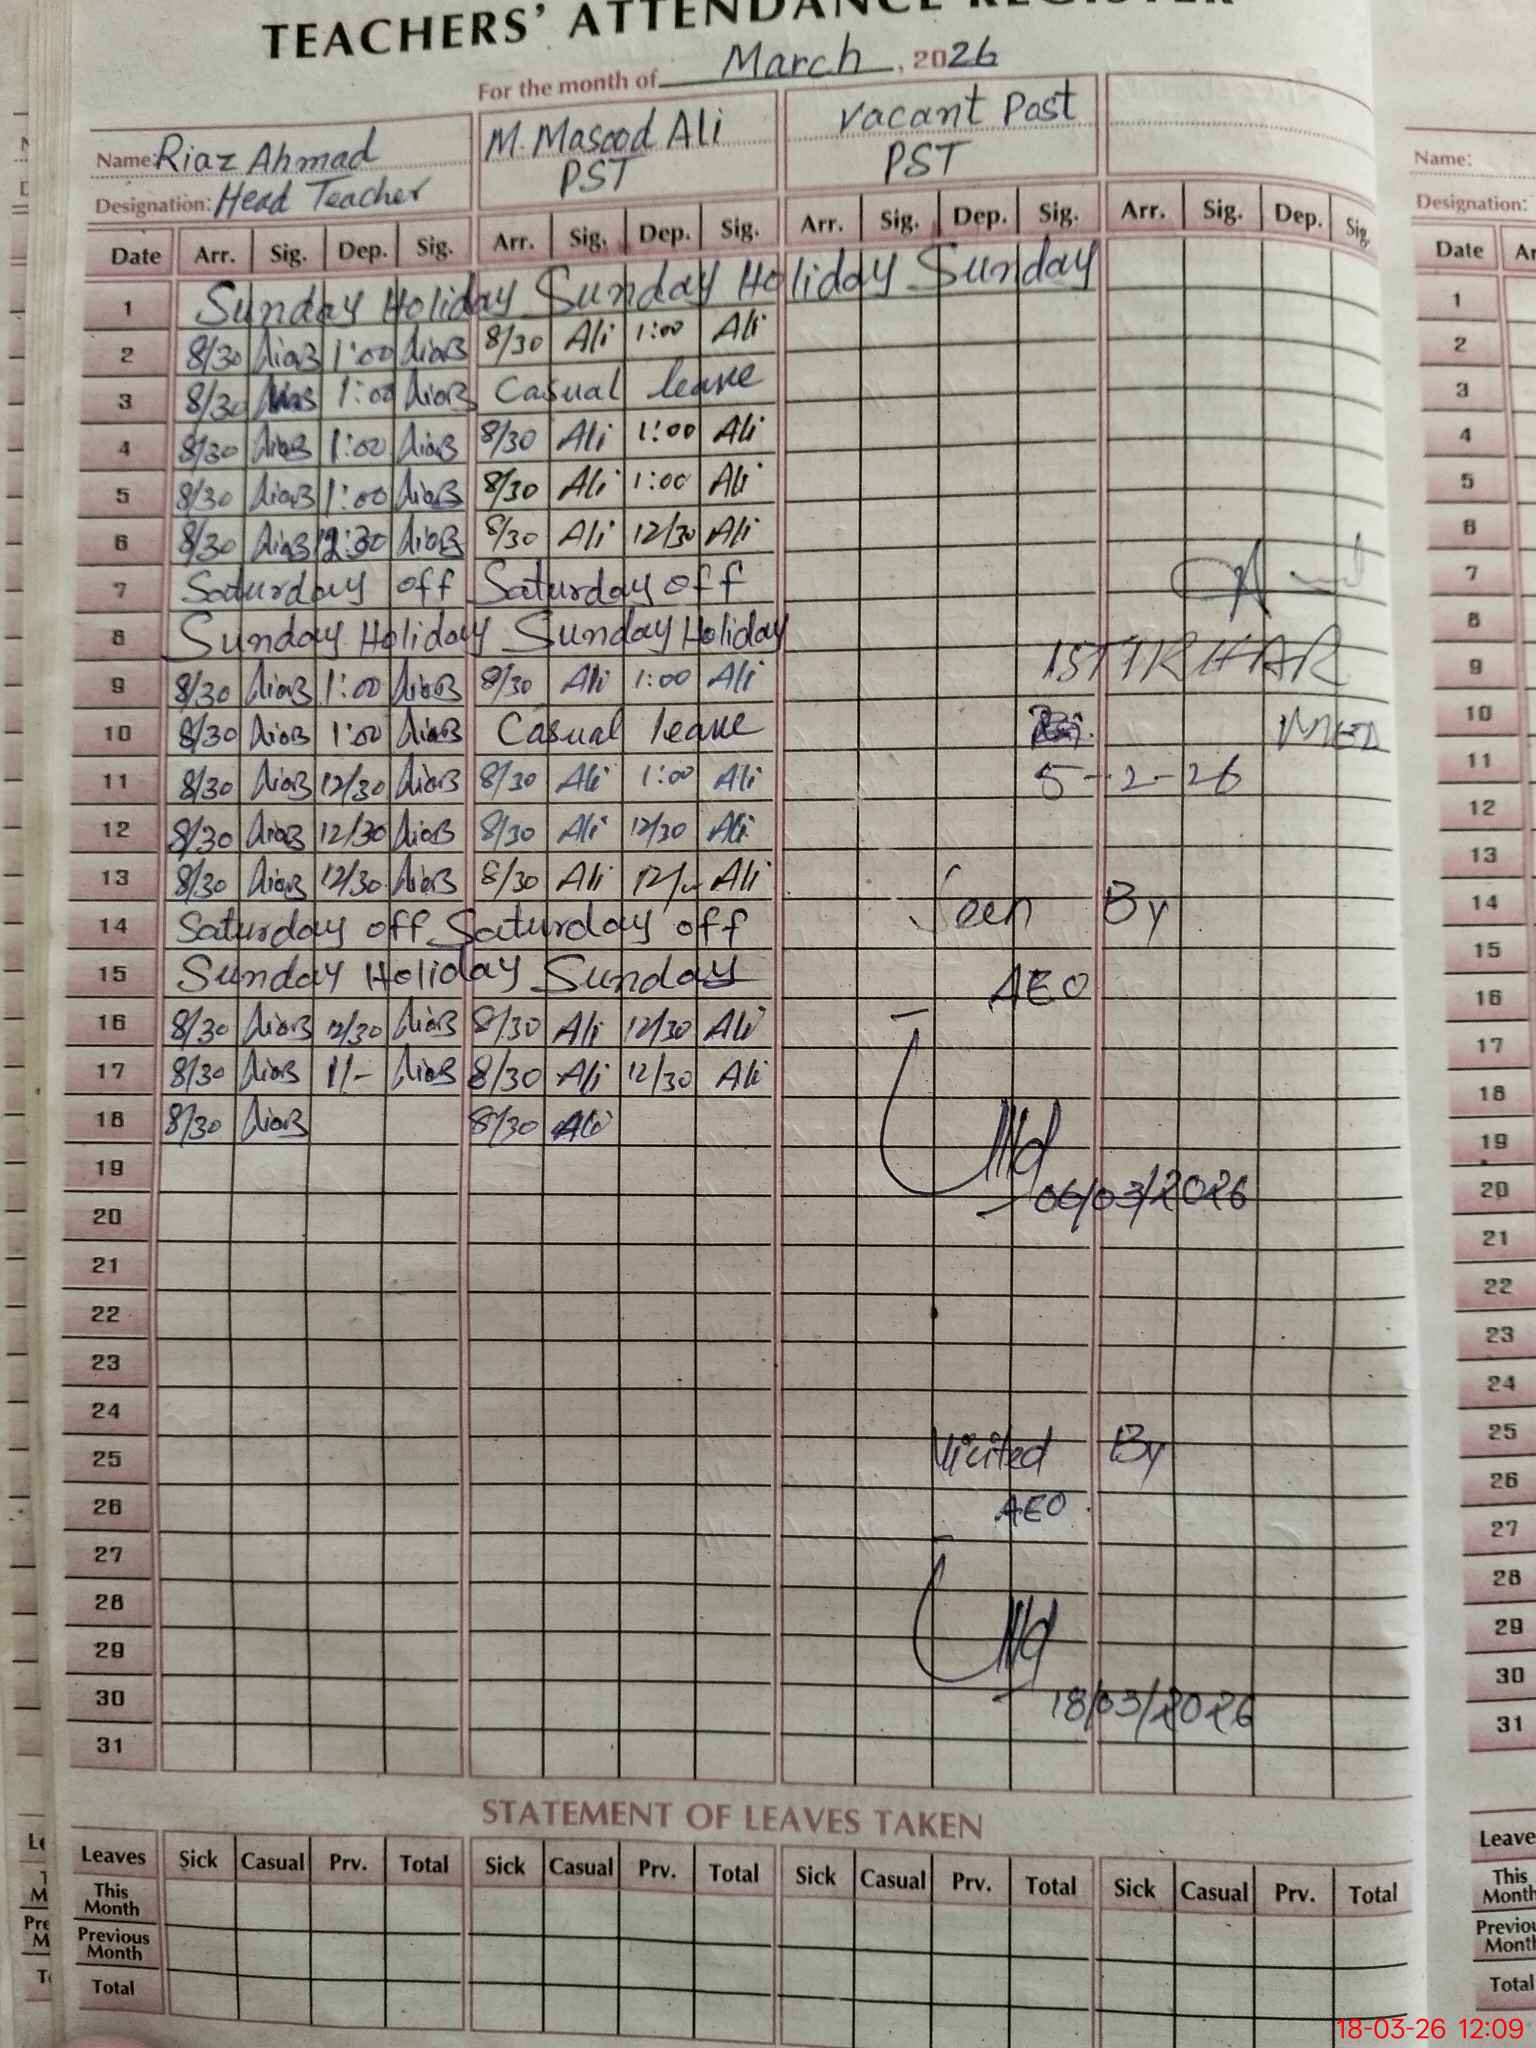 TEACHERS' ATTENDANCE REGISTER
For the month of March, 2026
Name: Riaz Ahmad M. Masood Ali vacant Post
Designation: Head Teacher PST PST
Date Arr. Sig. Dep. Sig. Arr. Sig. Dep. Sig. Arr. Sig. Dep. Sig. Arr. Sig. Dep. Sig.
1 Sunday Holiday Sunday Holiday Sunday
2 8/30 1:00 8/30 Ali 1:00 Ali
3 8/30 1:00 Casual leave
4 8/30 1:00 8/30 Ali 1:00 Ali
5 8/30 1:00 8/30 Ali 1:00 Ali
6 8/30 12:30 8/30 Ali 12/30 Ali
7 Saturday off Saturday off
8 Sunday Holiday Sunday Holiday
9 8/30 1:00 8/30 Ali 1:00 Ali
10 8/30 1:00 Casual leave
11 8/30 12/30 8/30 Ali 1:00 Ali
5-2-26
12 8/30 12/30 8/30 Ali 12/30 Ali
13 8/30 12/30 8/30 Ali 12/- Ali
Seen By
14 Saturday off Saturday off
15 Sunday Holiday Sunday
AEO
16 8/30 12/30 8/30 Ali 12/30 Ali
17 8/30 1/- 8/30 Ali 12/30 Ali
18 8/30 8/30 Ali
19
06/03/2026
20
21
22
23
24
25 Visited By
26 AEO
27
28
29
30
18/03/2026
31
STATEMENT OF LEAVES TAKEN
Leaves Sick Casual Prv. Total Sick Casual Prv. Total Sick Casual Prv. Total Sick Casual Prv. Total
This Month
Previous Month
Total
Name:
Designation:
Date
1
2
3
4
5
6
7
8
9
10
11
12
13
14
15
16
17
18
19
20
21
22
23
24
25
26
27
28
29
30
31
Leave
This
Month
Total
18-03-26 12:09